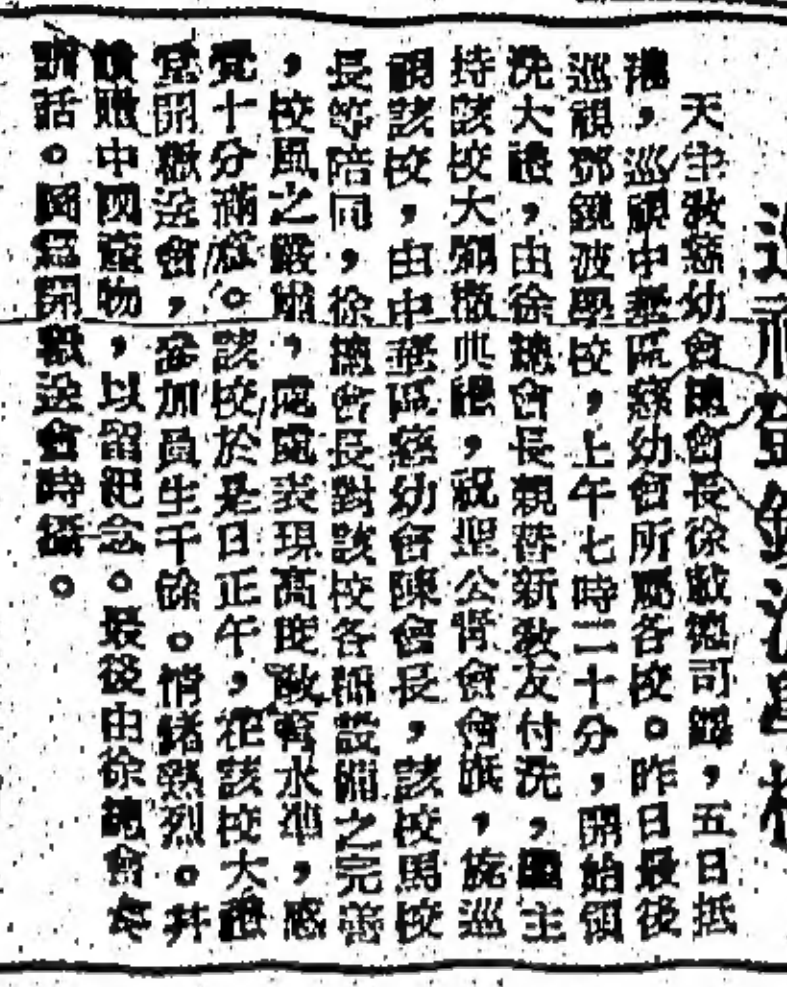 天主教慈幼會總會長徐敬德司鐸，五日抵
港，巡視中華區慈幼會所屬各校。昨日最後
巡視鄧鏡波學校，上午七時三十分，開始領
洗大禮，由徐總會長親替新教友付洗，繼主
持該校大彌撒典禮，祝聖公青會會旗，旋巡
視該校，由中華區慈幼會陳會長，該校馬校
長等陪同，徐總會長對該校各種設備之完善
，校風之嚴肅，處處表現高度教育水準，感
覺十分滿意。該校於是日正午，在該校大禮
堂開歡送會，參加員生千餘。情緒熱烈。并
贈中國產物，以留紀念。最後由徐總會長
訓話。圖為開歡送會時攝。